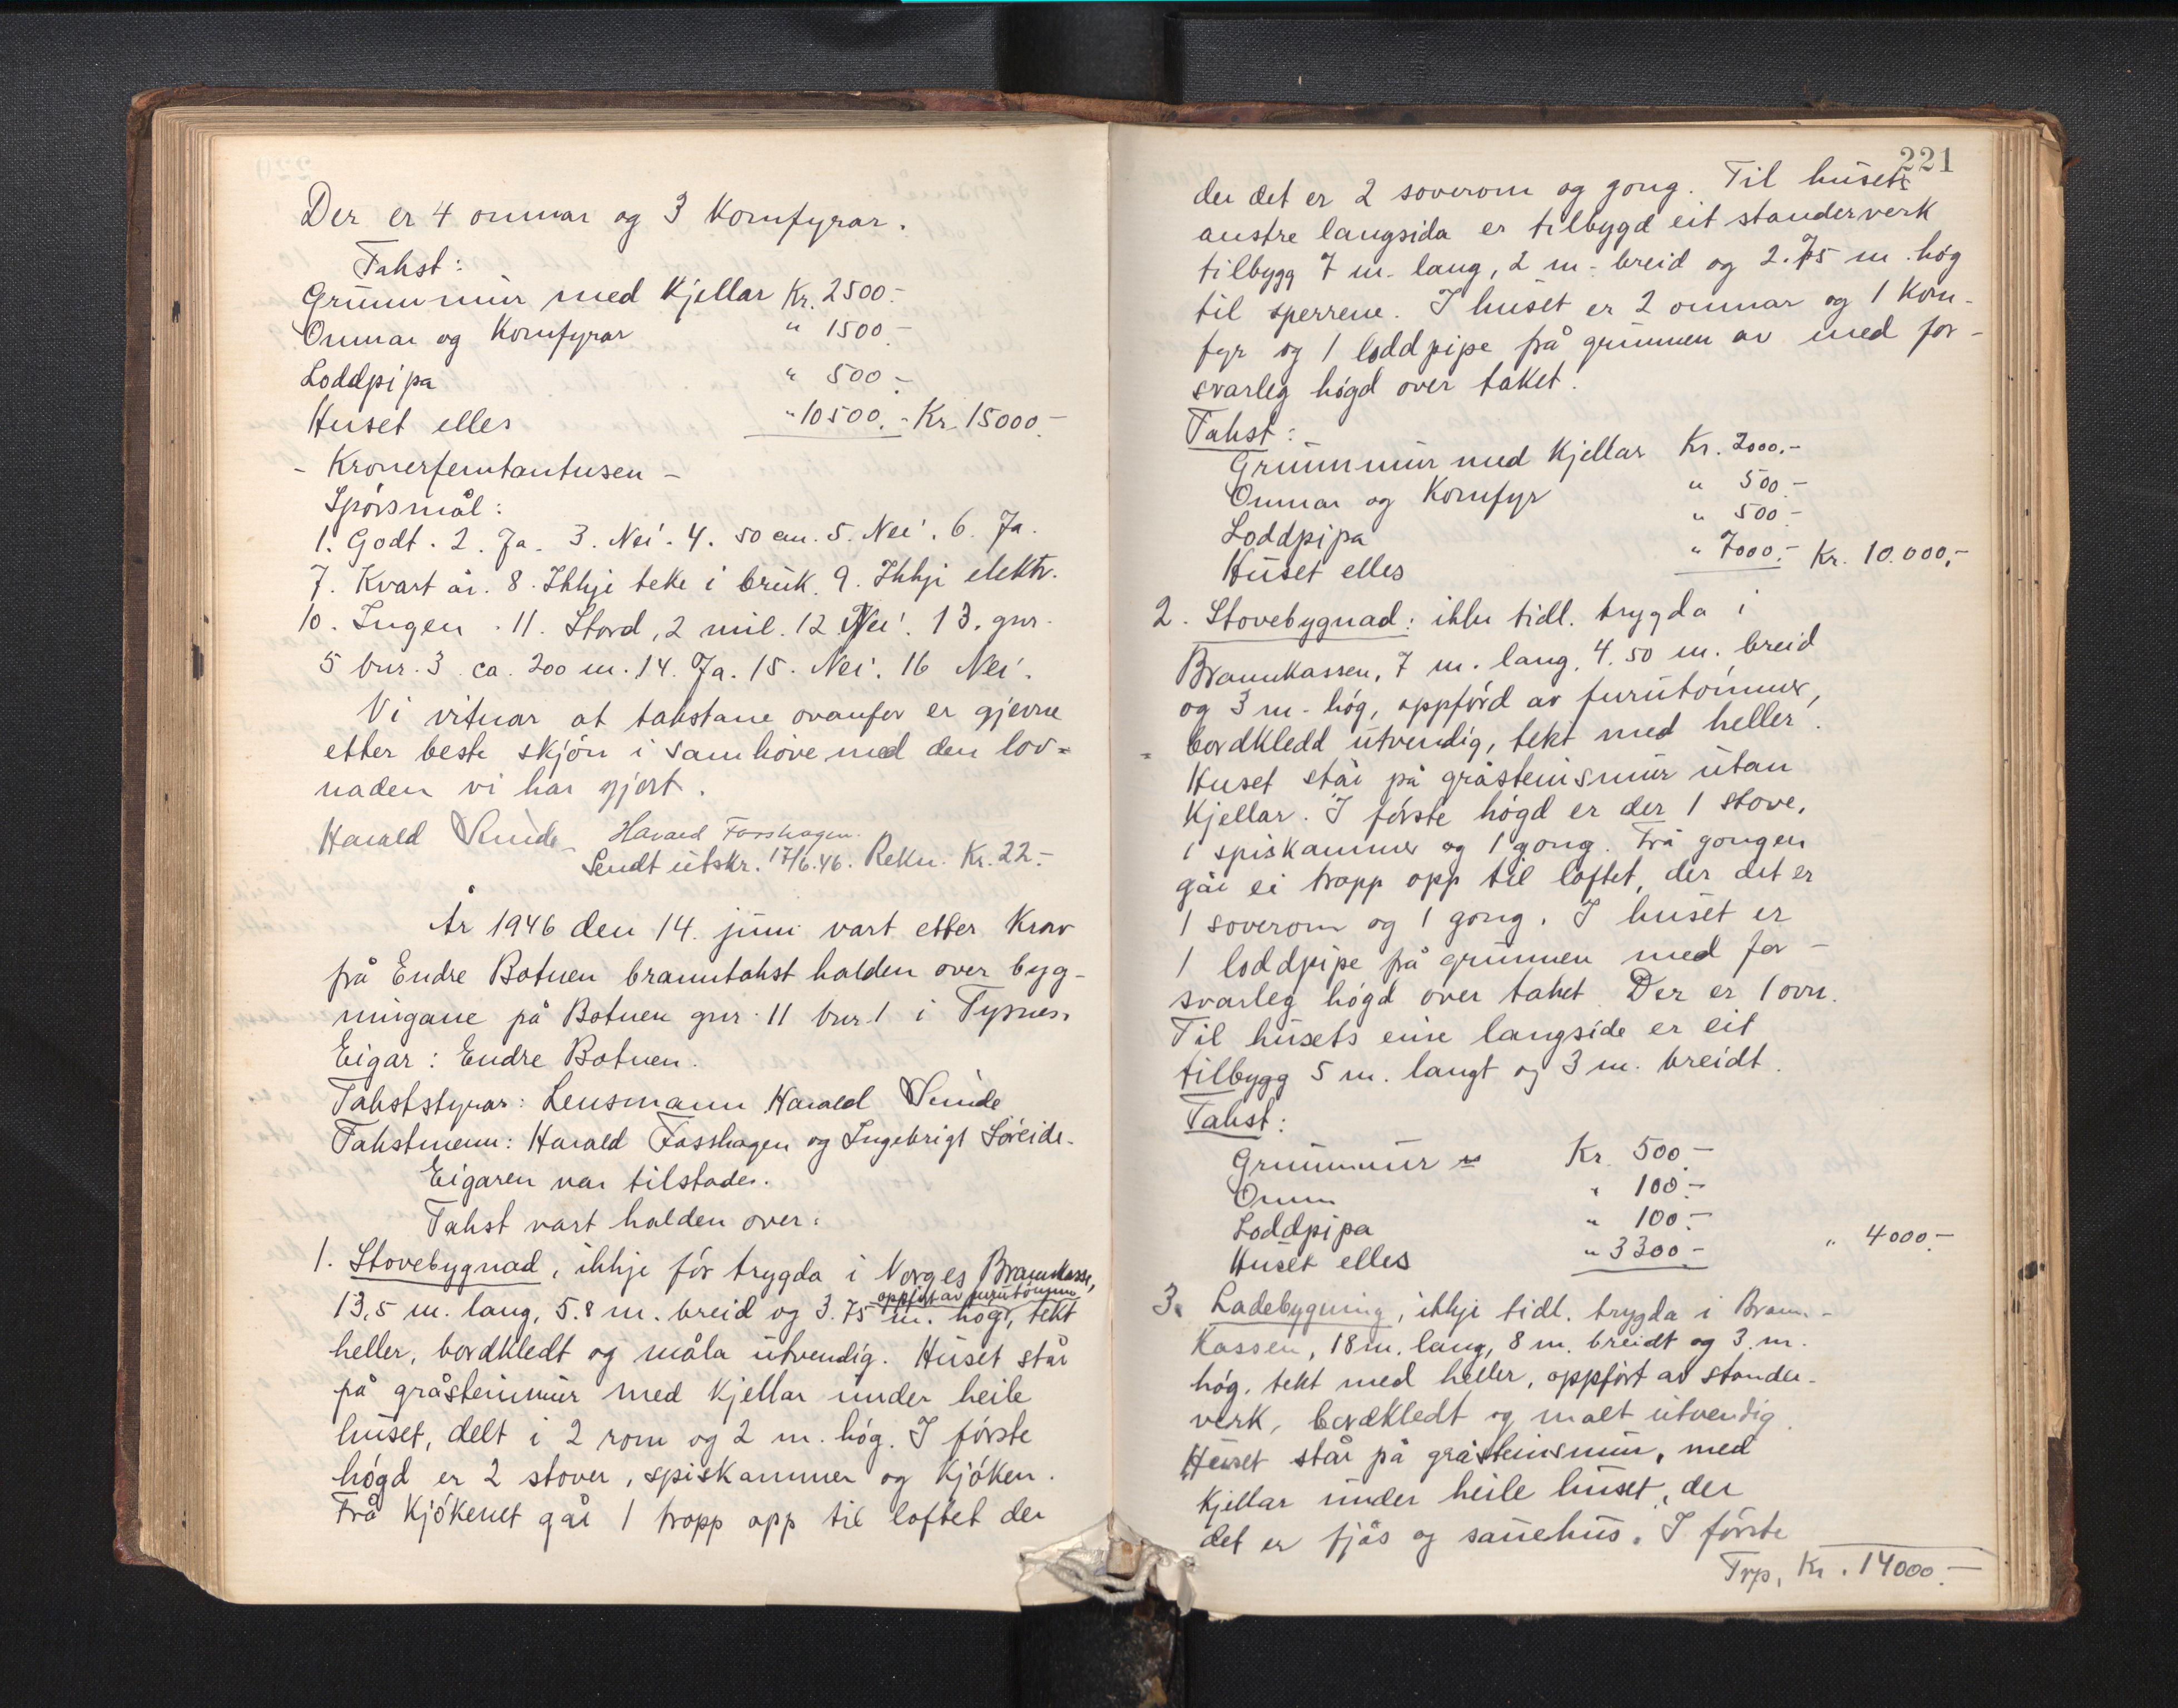 Der er 4 omnar og 3 Komfyrar.
Takst:
Grunnmur med Kjellar Kr. 2500.-
Omnar og Komfyrar " 1500.-
Loddpipa " 500.-
Huset elles " 10500.- Kr. 15000.-
- Kronerfemtantusen -
Spörsmål:
1. Godt. 2. Ja. 3. Nei. 4. 50 cm. 5. Nei. 6. Ja.
7. Kvart år. 8. Ikkje teke i bruk. 9. Ikkje elektr.
10. Ingen. 11. Stord, 2 mil. 12 Nei. 13. gnr.
5 bnr. 3 ca. 200 m. 14. Ja. 15. Nei. 16 Nei.
Vi vitnar at takstane ovanfor er gjevne
etter beste skjön i samhöve med den lov=
naden vi har gjort.
Harald Sunde Harald Fosshagen.
Sendt utskr. 17/6.46. Rekn. Kr. 22.-
År 1946 den 14. juni vart etter Krav
frå Endre Botnen branntakst halden over byg-
ningane på Botnen gnr. 11 bnr. 1 i Tysnes.
Eigar: Endre Botnen.
Takststyrar: Lensmann Harald Sunde
Takstmenn: Harald Fosshagen og Ingebrigt Söreide.
Eigaren var tilstades.
Takst vart halden over:
1. Stovebygnad, ikkje för trygda i Norges Brannkasse,
oppfört av furutömmer
13,5 m. lang, 5.8 m. breid og 3.75 m. hög, tekt
heller, bordkledt og måla utvendig. Huset står
på gråsteinmur med Kjellar under heile
huset, delt i 2 rom og 2 m. hög. I förste
högd er 2 stover, spiskammer og Kjöken.
Frå Kjökenet går 1 tropp opp til loftet der
221
der det er 2 soverom og gong. Til husets
austre langsida er tilbygd eit standerverk
tilbygg 7 m. lang, 2 m. breid og 2.75 m. hög
til sperrene. I huset er 2 omnar og 1 Kom-
fyr og 1 loddpipe frå grunnen av med for-
svarleg högd over taket.
Takst:
Grunnmur med Kjellar Kr. 2000.-
Omnar og Komfyr " 500.-
Loddpipa " 500.-
Huset elles " 7000.- Kr. 10.000,-
2. Stovebygnad: ikke tidl. trygda i
Brannkassen, 7 m. lang, 4.50 m. breid
og 3 m. hög, oppförd av furutömmer,
bordkledd utvendig, tekt med heller.
Huset står på gråsteinsmur utan
Kjellar. I förste högd er der 1 stove,
1 spiskammer og 1 gong. Frå gongen
går ei tropp opp til loftet, der det er
1 soverom og 1 gong. I huset er
1 loddpipe frå grunnen med for-
svarleg högd over taket. Der er 1 ovn.
Til husets eine langside er eit
tilbygg 5 m. langt og 3 m. breidt.
Takst:
Grunnmur Kr. 500.-
Omn " 100.-
Loddpipa " 100.-
Huset elles " 3300.- " 4000.-
3. Ladebygning, ikkje tidl. trygda i Brann-
Kassen, 18 m. lang, 8 m. breidt og 3. m.
hög. tekt med heller, oppfört av stander-
verk, bordkledt og malt utvendig.
Huset står på gråsteinsmur, med
Kjellar under heile huset, der
det er fjös og sauehus. I förste
Trp. Kr. 14000.-